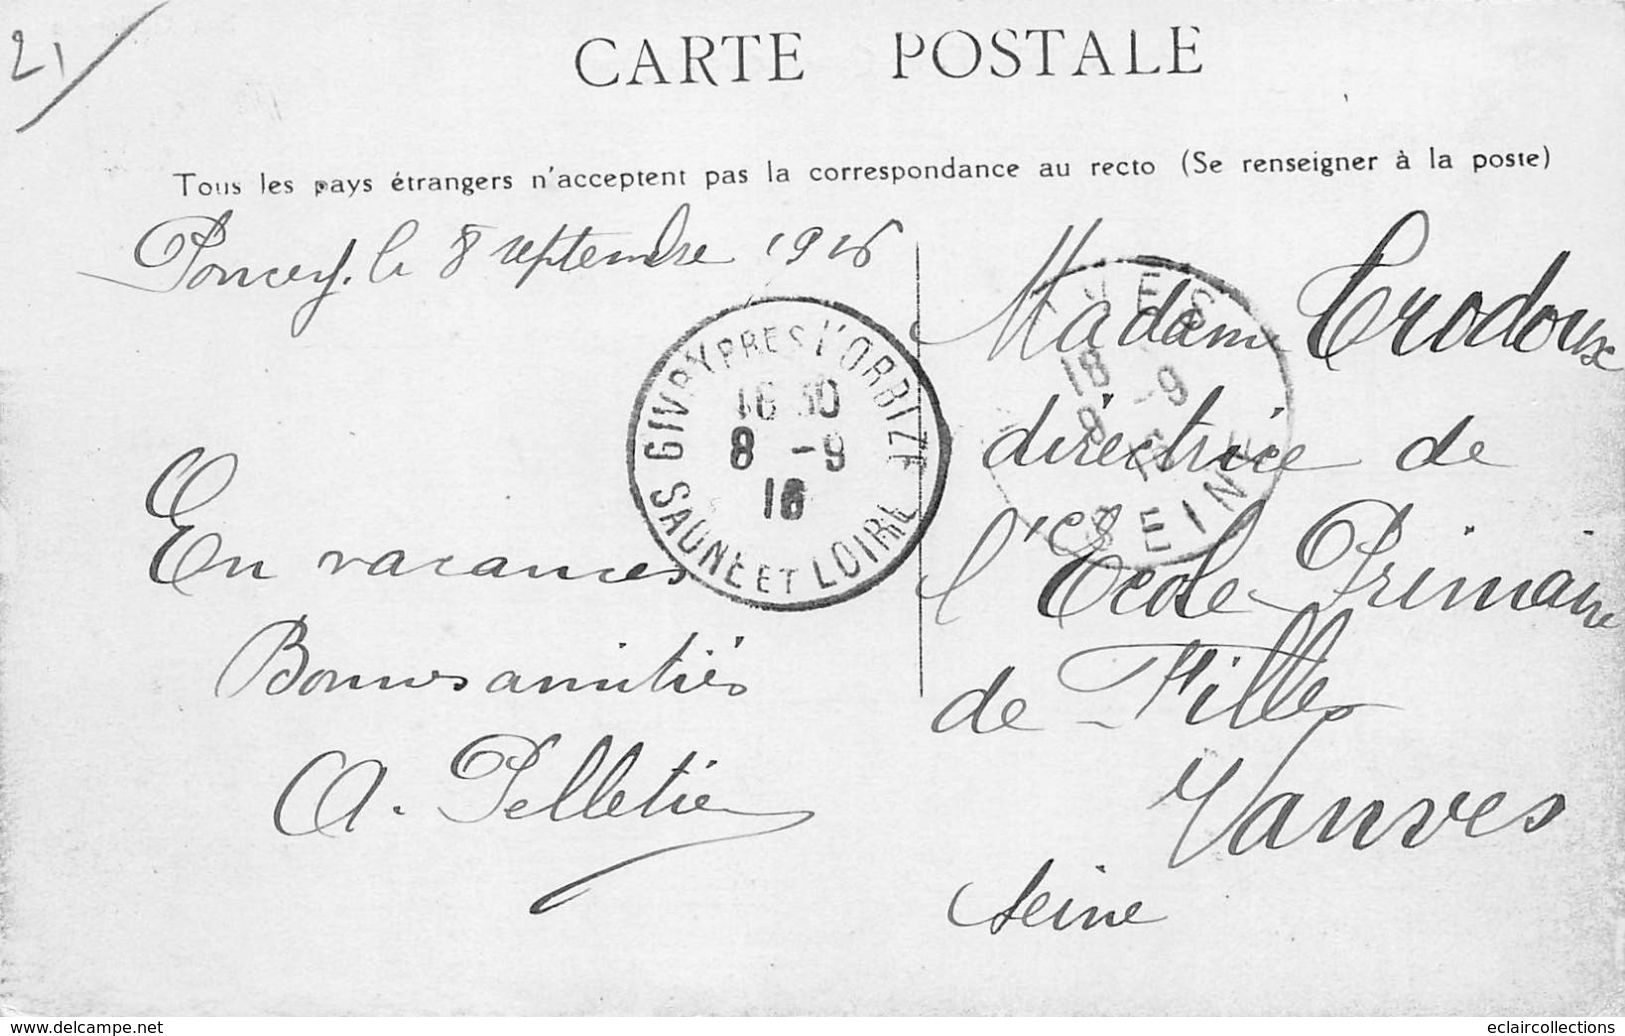 21
CARTE POSTALE
Tous les pays étrangers n'acceptent pas la correspondance au recto (Se renseigner à la poste)
Poncey, le 8 septembre 1916
En vacances
Bonnes amitiés
A. Pelletier
GIVRY PRES L'ORBIZE
16 30
8 -9
16
SAONE ET LOIRE
Madame Trodoux
directrice de
l'Ecole Primaire
de Filles
Vanves
Seine
VES
18
8 -9
SEINE
www.delcampe.net
eclaircollections